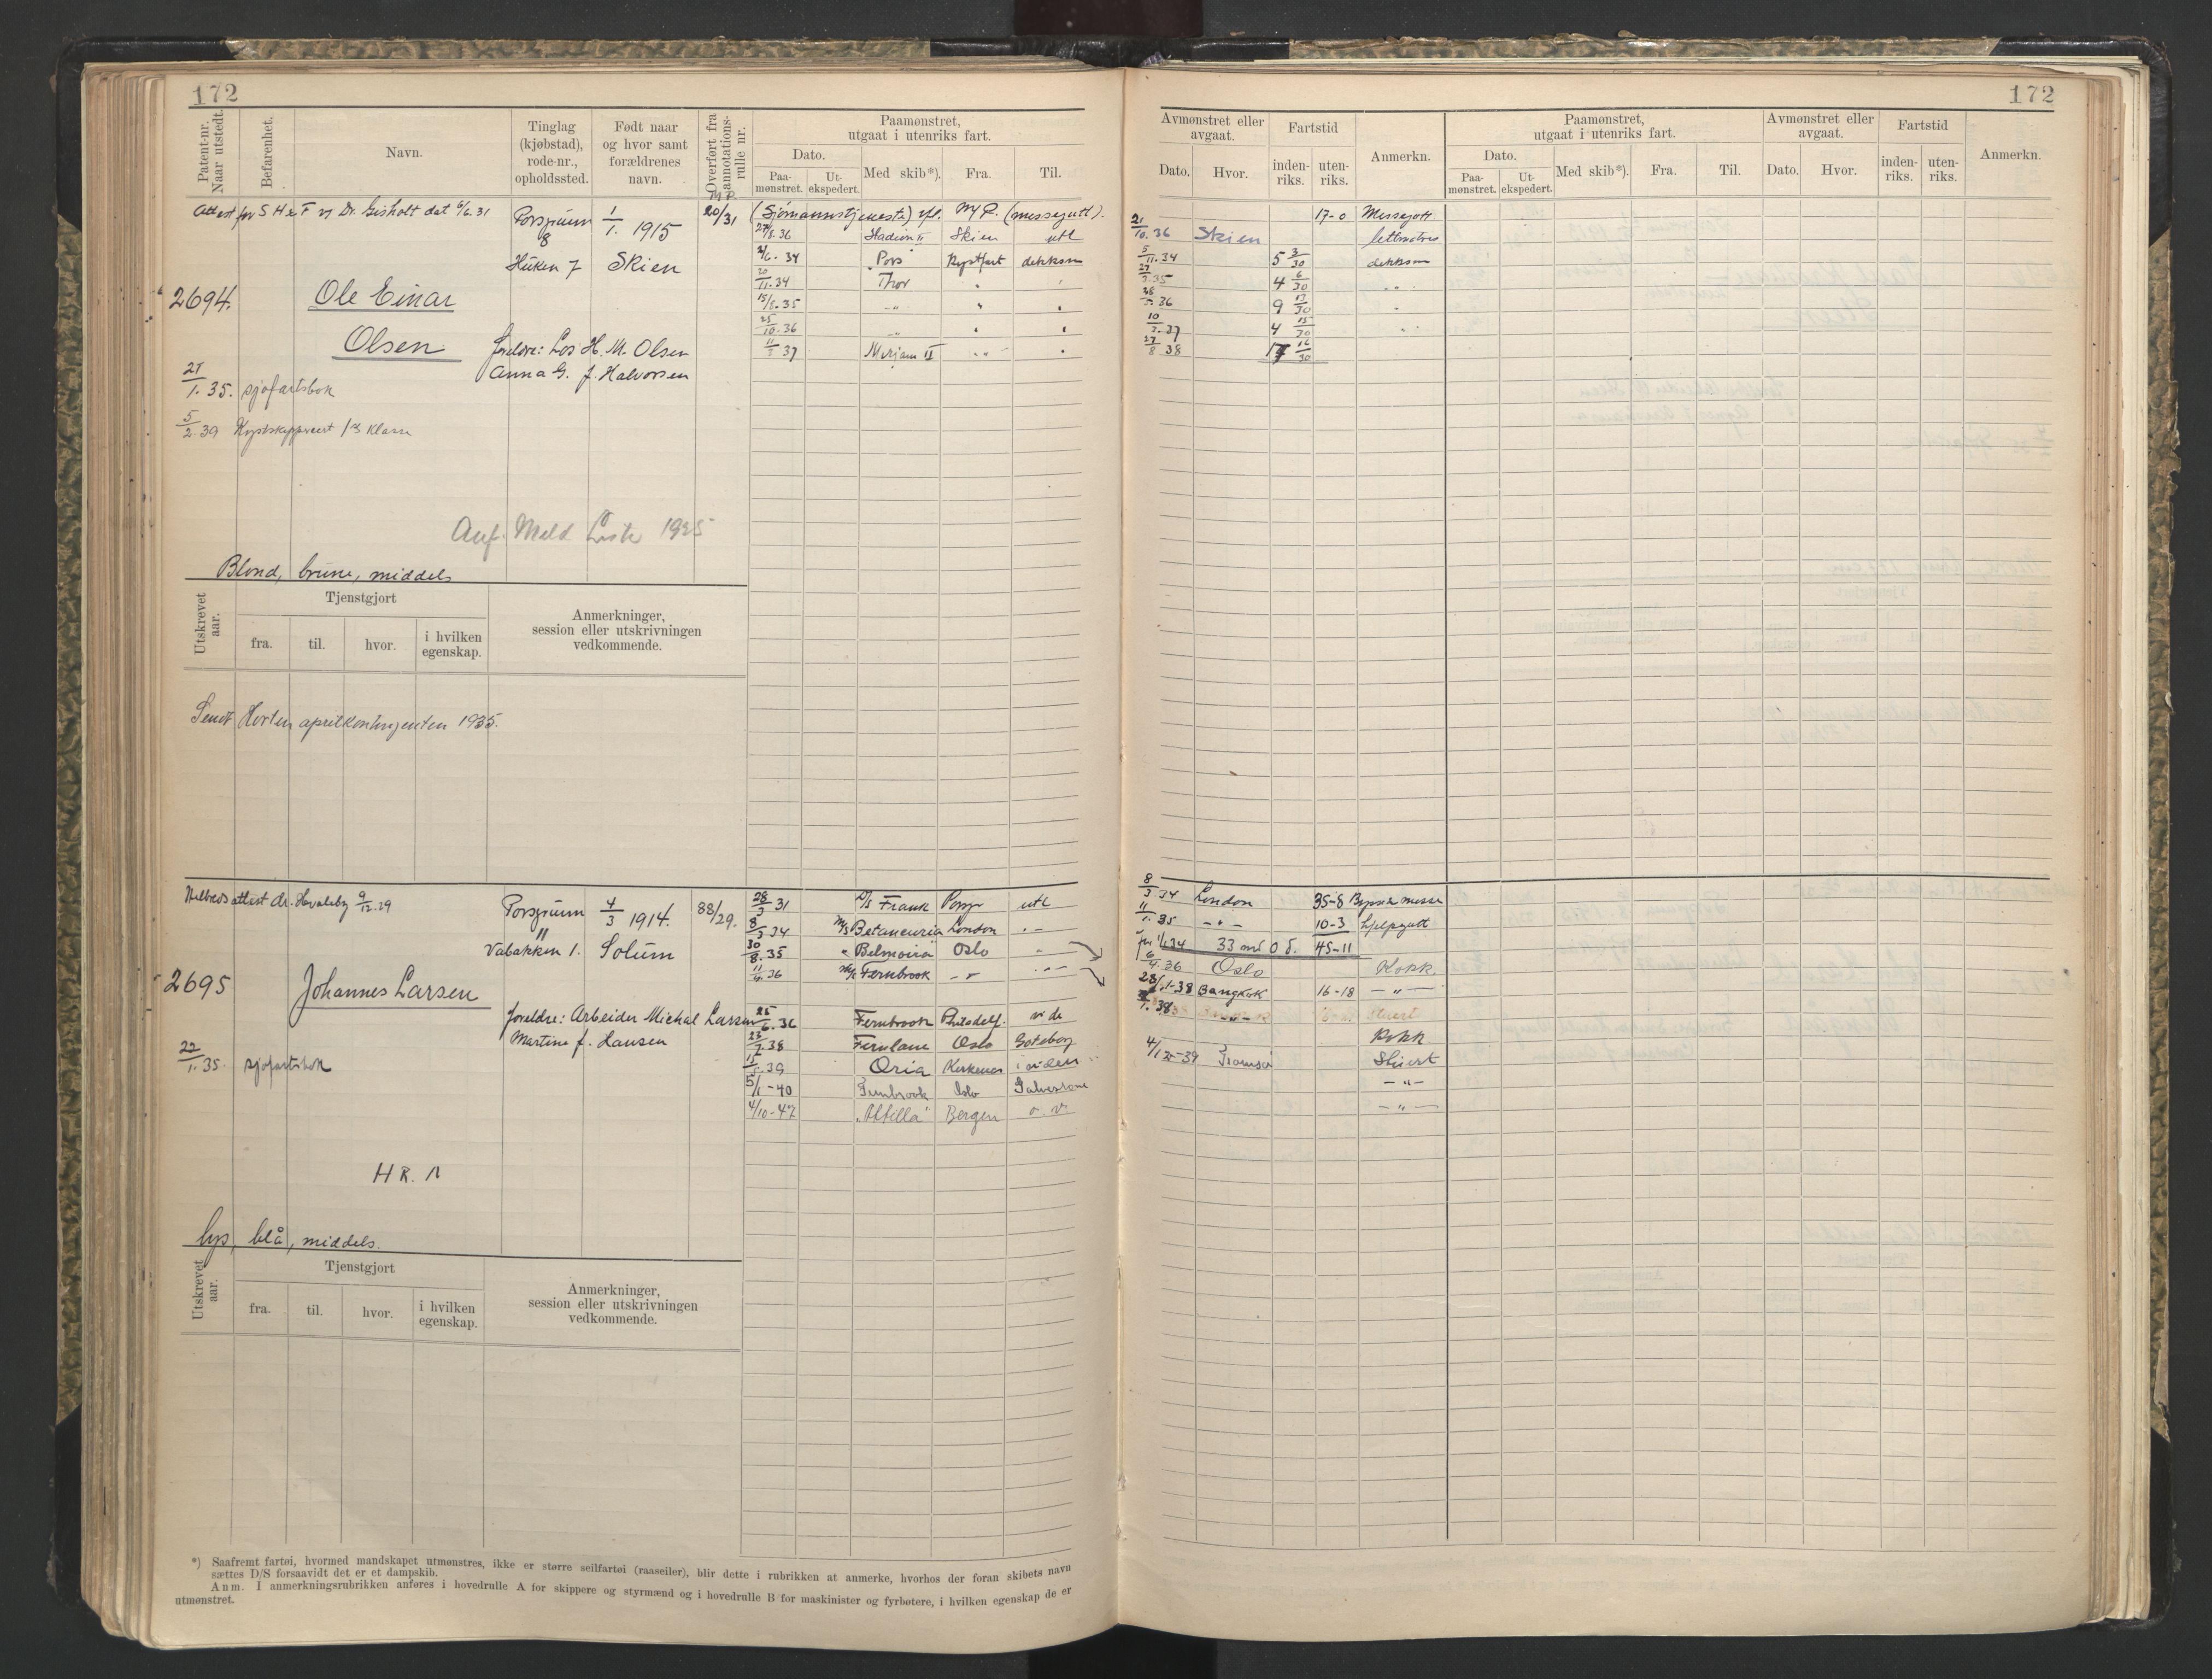 172
Patent-nr. Naar utstedt.
Befarenhet.
Navn.
Tinglag (kjøbstad), rode-nr., opholdssted.
Født naar og hvor samt forældrenes navn.
Overført fra annotations-rulle nr.
Paamønstret, utgaat i utenriks fart.
Dato.
Paa-mønstret.
Ut-ekspedert.
Med skib*).
Fra.
Til.
Attest for S H e F v/ Dr. Gisholt dat 6/6.31
Porsgrunn 8
1/1. 1915
M.P. 20/31
(Sjømannstjeneste) M/P. (messegutt).
27/8.36 Stadion II Skien utl
Hüken 7
Skien
2/6. 34 "Pors" Kystfart dekksm
20/11.34 Thor " "
2694.
Ole Einar
15/8.35 -"- " "
Olsen
25/10.36 -"- " "
foreldre: Los H. M. Olsen
11/3 37 Mirjam II -"- "
Anna G. f. Halvorsen
21/1. 35. sjøfartsbok
5/2 39 Kystskippercert 1ste Klasse
Auf. Meld Liste 1935
Blond, brune, middels
Utskrevet aar.
Tjenstgjort
fra.
til.
hvor.
i hvilken egenskap.
Anmerkninger, session eller utskrivningen vedkommende.
Sendt Horten aprilkontingenten 1935.
Helbredsattest dr. Hvalsby 9/12.29
Porsgrunn 11
4/3 1914.
88/29.
28/3 31 D/S Frank Porsgr utl
8/3 34 M/S Betancuria London "-
Vabakken 1.
Solum
30/8.35 " Belmoira Oslo "
11/4.36 M/S Fernbrook -"- -"-
2695
Johannes Larsen
foreldre: Arbeider Michal Larsen
25/6.36 Fernbrook Philadelf. vide
Martine f. Hansen
23/7 38 Fernlane Oslo Göteborg
22/1. 35. sjøfartsbok
15/5.39 Oria Kirkenes i viden
5/1-40 Fernbrook Oslo Galvestone
4/10-47 "Attilla" Bergen o. v.
H R. N
lys, blå, middels.
Utskrevet aar.
Tjenstgjort
fra.
til.
hvor.
i hvilken egenskap.
Anmerkninger, session eller utskrivningen vedkommende.
*) Saafremt fartøi, hvormed mandskapet utmønstres, ikke er større seilfartøi (raaseiler), blir dette i rubrikken at anmerke, hvorhos der foran skibets navn
sættes D/S forsaavidt det er et dampskib.
Anm. I anmerkningsrubrikken anføres i hovedrulle A for skippere og styrmænd og i hovedrulle B for maskinister og fyrbøtere, i hvilken egenskap de er
utmønstret.
172
Avmønstret eller avgaat.
Dato.
Hvor.
Fartstid
inden-riks.
uten-riks.
Anmerkn.
Paamønstret, utgaat i utenriks fart.
Dato.
Paa-mønstret.
Ut-ekspedert.
Med skib*).
Fra.
Til.
Avmønstret eller avgaat.
Dato.
Hvor.
Fartstid
inden-riks.
uten-riks.
Anmerkn.
17-0 Messegutt
21/10.36 Skien lettmatros
5/11.34 5 3/30 dekksm
27/3.35 4 6/30 -"-
28/5.36 9 13/30 "
10/3.37 4 15/30 -"-
27/8 38 17 16/30
8/3 34 London 35-8 Byssa messe
11/1. 35 -"- 10-3 hjelpegutt
før 1/1.34 33 md 0 d. 45-11
6/4.36 Oslo Kokk
28/1-38 Bangkok 16-18 -"-
Kokk
4/12-39 Tromsø Stuert
-"-
-"-